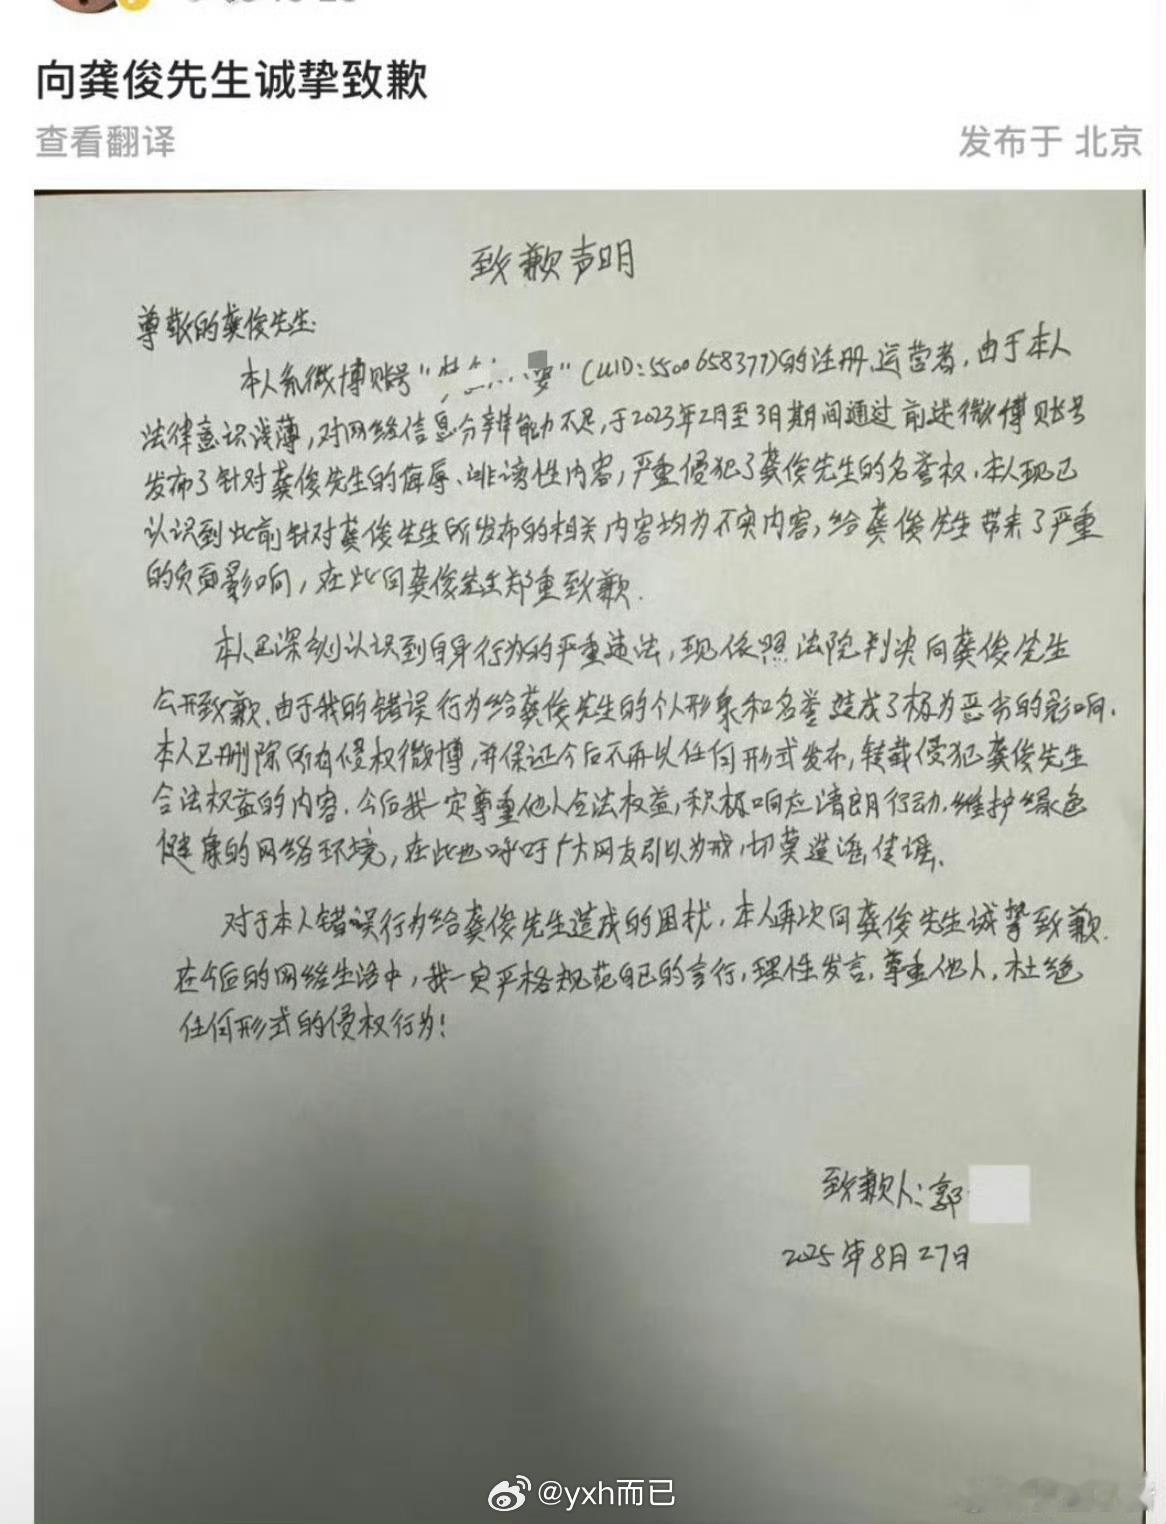 向龚俊先生诚挚致歉
查看翻译 发布于 北京
致歉声明
尊敬的龚俊先生:
本人系微博账号"安"(UID:5500658377)的注册、运营者,由于本人
法律意识浅薄,对网络信息分辨能力不足,于2023年2月至3月期间通过前述微博账号
发布了针对龚俊先生的侮辱、诽谤性内容,严重侵犯了龚俊先生的名誉权,本人现已
认识到此前针对龚俊先生所发布的相关内容均为不实内容,给龚俊先生带来了严重
的负面影响,在此向龚俊先生郑重致歉.
本人已深刻认识到自身行为的严重违法,现依照法院判决向龚俊先生
公开致歉.由于我的错误行为给龚俊先生的个人形象和名誉造成了极为恶劣的影响.
本人已删除所有侵权微博,并保证今后不再以任何形式发布,转载侵犯龚俊先生
合法权益的内容.今后我一定尊重他人合法权益,积极响应清朗行动.维护绿色
健康的网络环境,在此也呼吁广大网友引以为戒,切莫造谣、传谣.
对于本人错误行为给龚俊先生造成的困扰,本人再次向龚俊先生诚挚致歉.
在今后的网络生活中,我一定严格规范自己的言行,理性发言,尊重他人,杜绝
任何形式的侵权行为!
致歉人:郭
2025年8月27日
@yxh而已